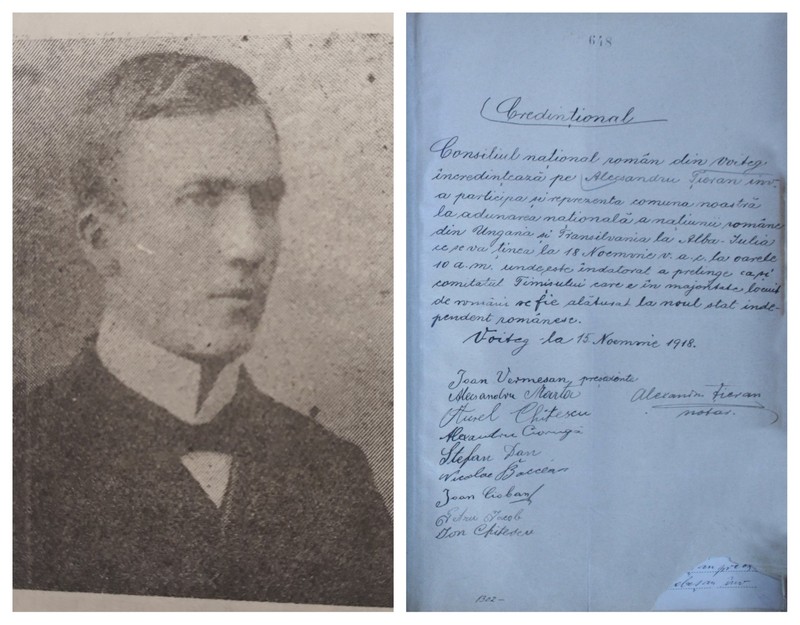 648
Credințional
Consiliul național român din Voiteg
încredințează pe Alexandru Fieran inv.
a participa și reprezenta comuna noastră
la adunarea națională a națiunii române
din Ungaria si Transilvania la Alba-Iulia
ce se va ținea la 18 Noemvrie v. a. c. la oarele
10 a.m, unde este îndatorat a pretinge ca și
comitatul Timisului care e în majoritate locuit
de români se fie alăturat la noul stat inde-
pendent românesc.
Voiteg la 15 Noemvrie 1918.
Ioan Vermesan, presedinte
Alexandru Marta
Alexandru Fieran
notar.
Aurel Chitescu
Alexandru
Stefan Dan
Nicolae
Ioan Cioban
Petru Iacob
Ion Chitescu
1302-